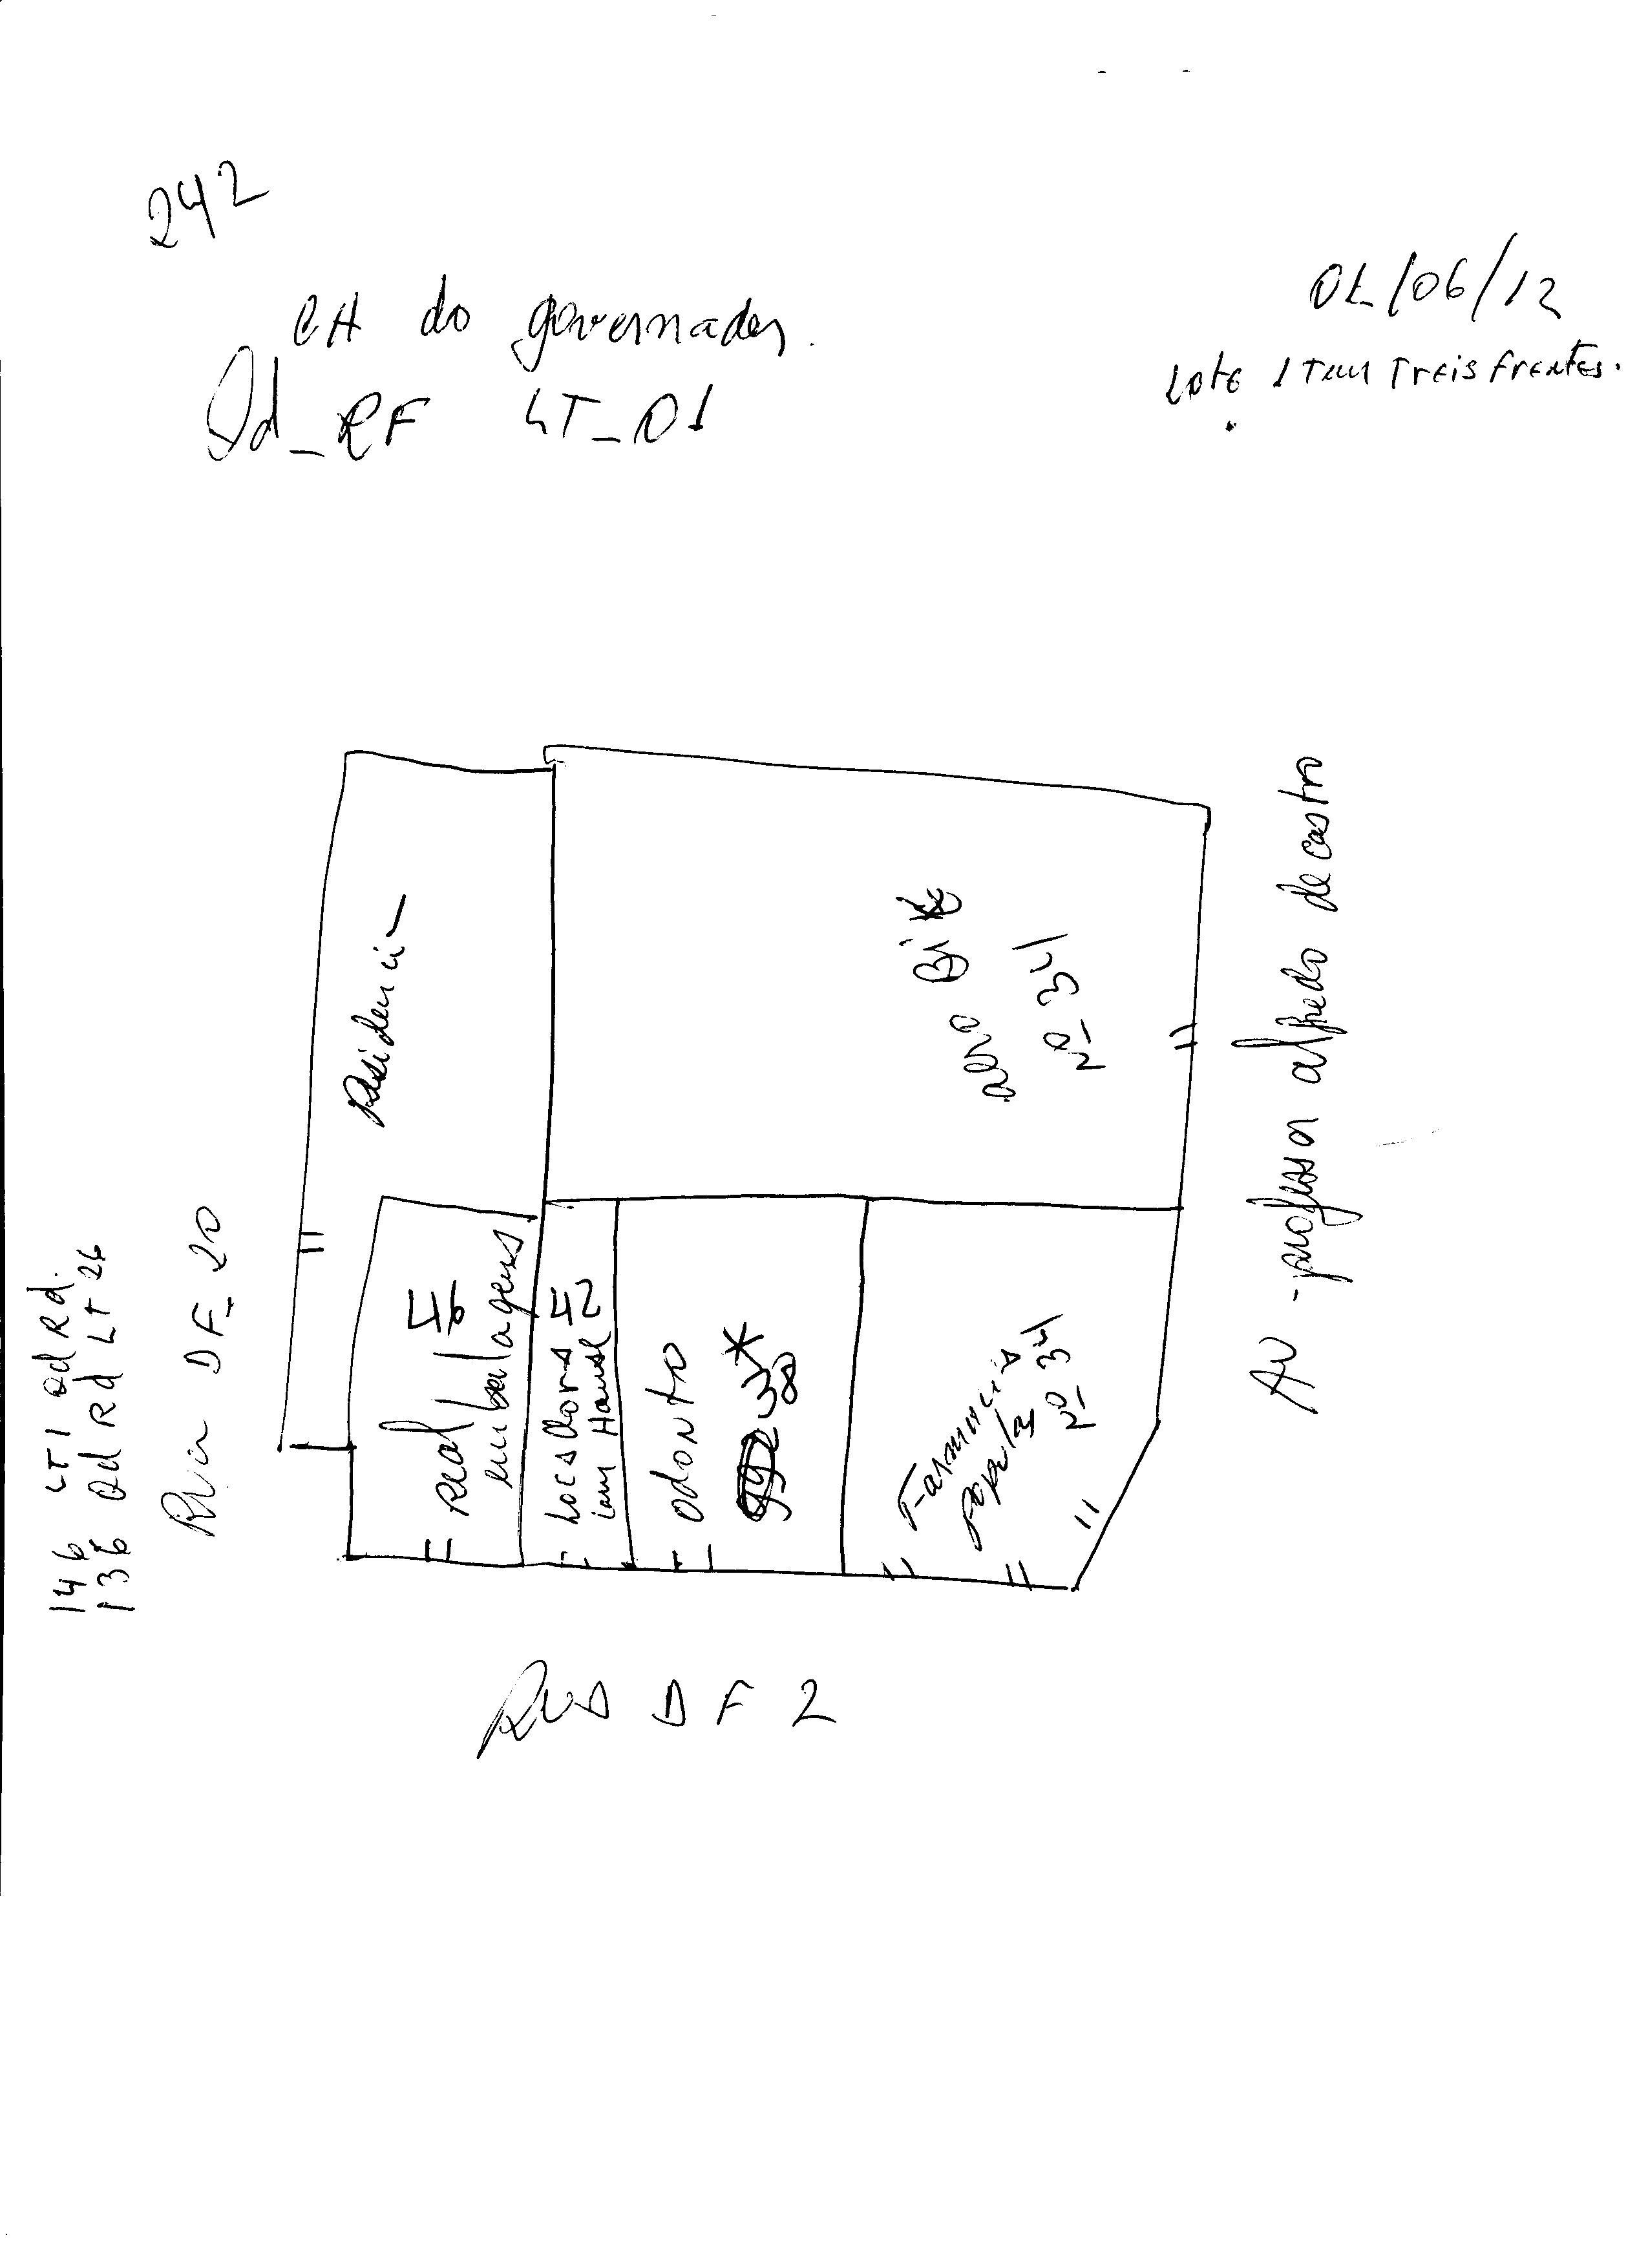 242
CH do governador.
Qd_RF LT_01
01/06/12
Lote 1 Tem Treis frentes.
146 LT1 Qd Rd.
136 Qd Rd LT 26
Rua DF_20
Residenci
Real 46
embalagens
Locadora 42
odonto
38
Farmacia
Popular
Nº 341
aero Bike
Nº 341
Av professor alfredo de castro
Rua DF 2